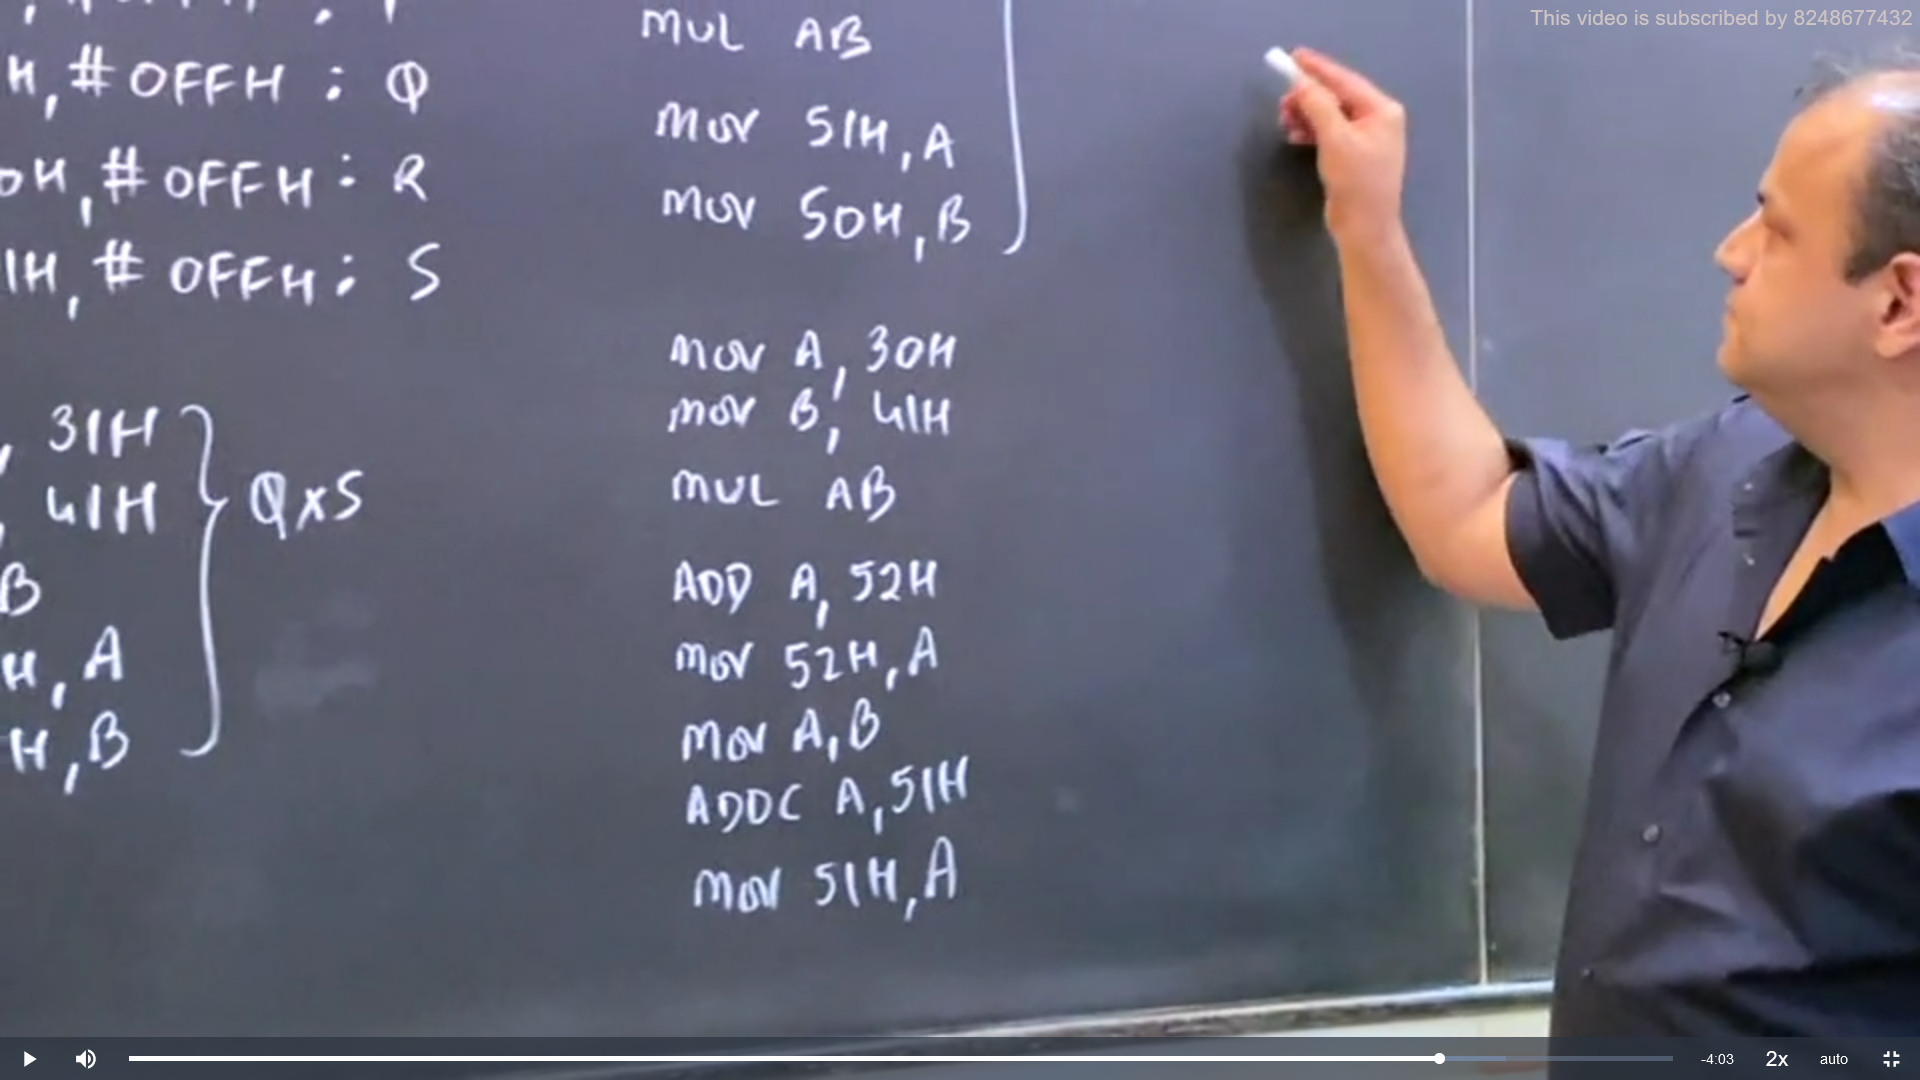 This video is subscribed by 8248677432
H, # OFFH : Q
0H, # OFFH : R
1H, # OFFH : S
, 31H
, 41H
B
H, A
H, B
QxS
MUL AB
MOV 51H, A
MOV 50H, B
MOV A, 30H
MOV B, 41H
MUL AB
ADD A, 52H
MOV 52H, A
MOV A, B
ADDC A, 51H
MOV 51H, A
-4:03 2x auto